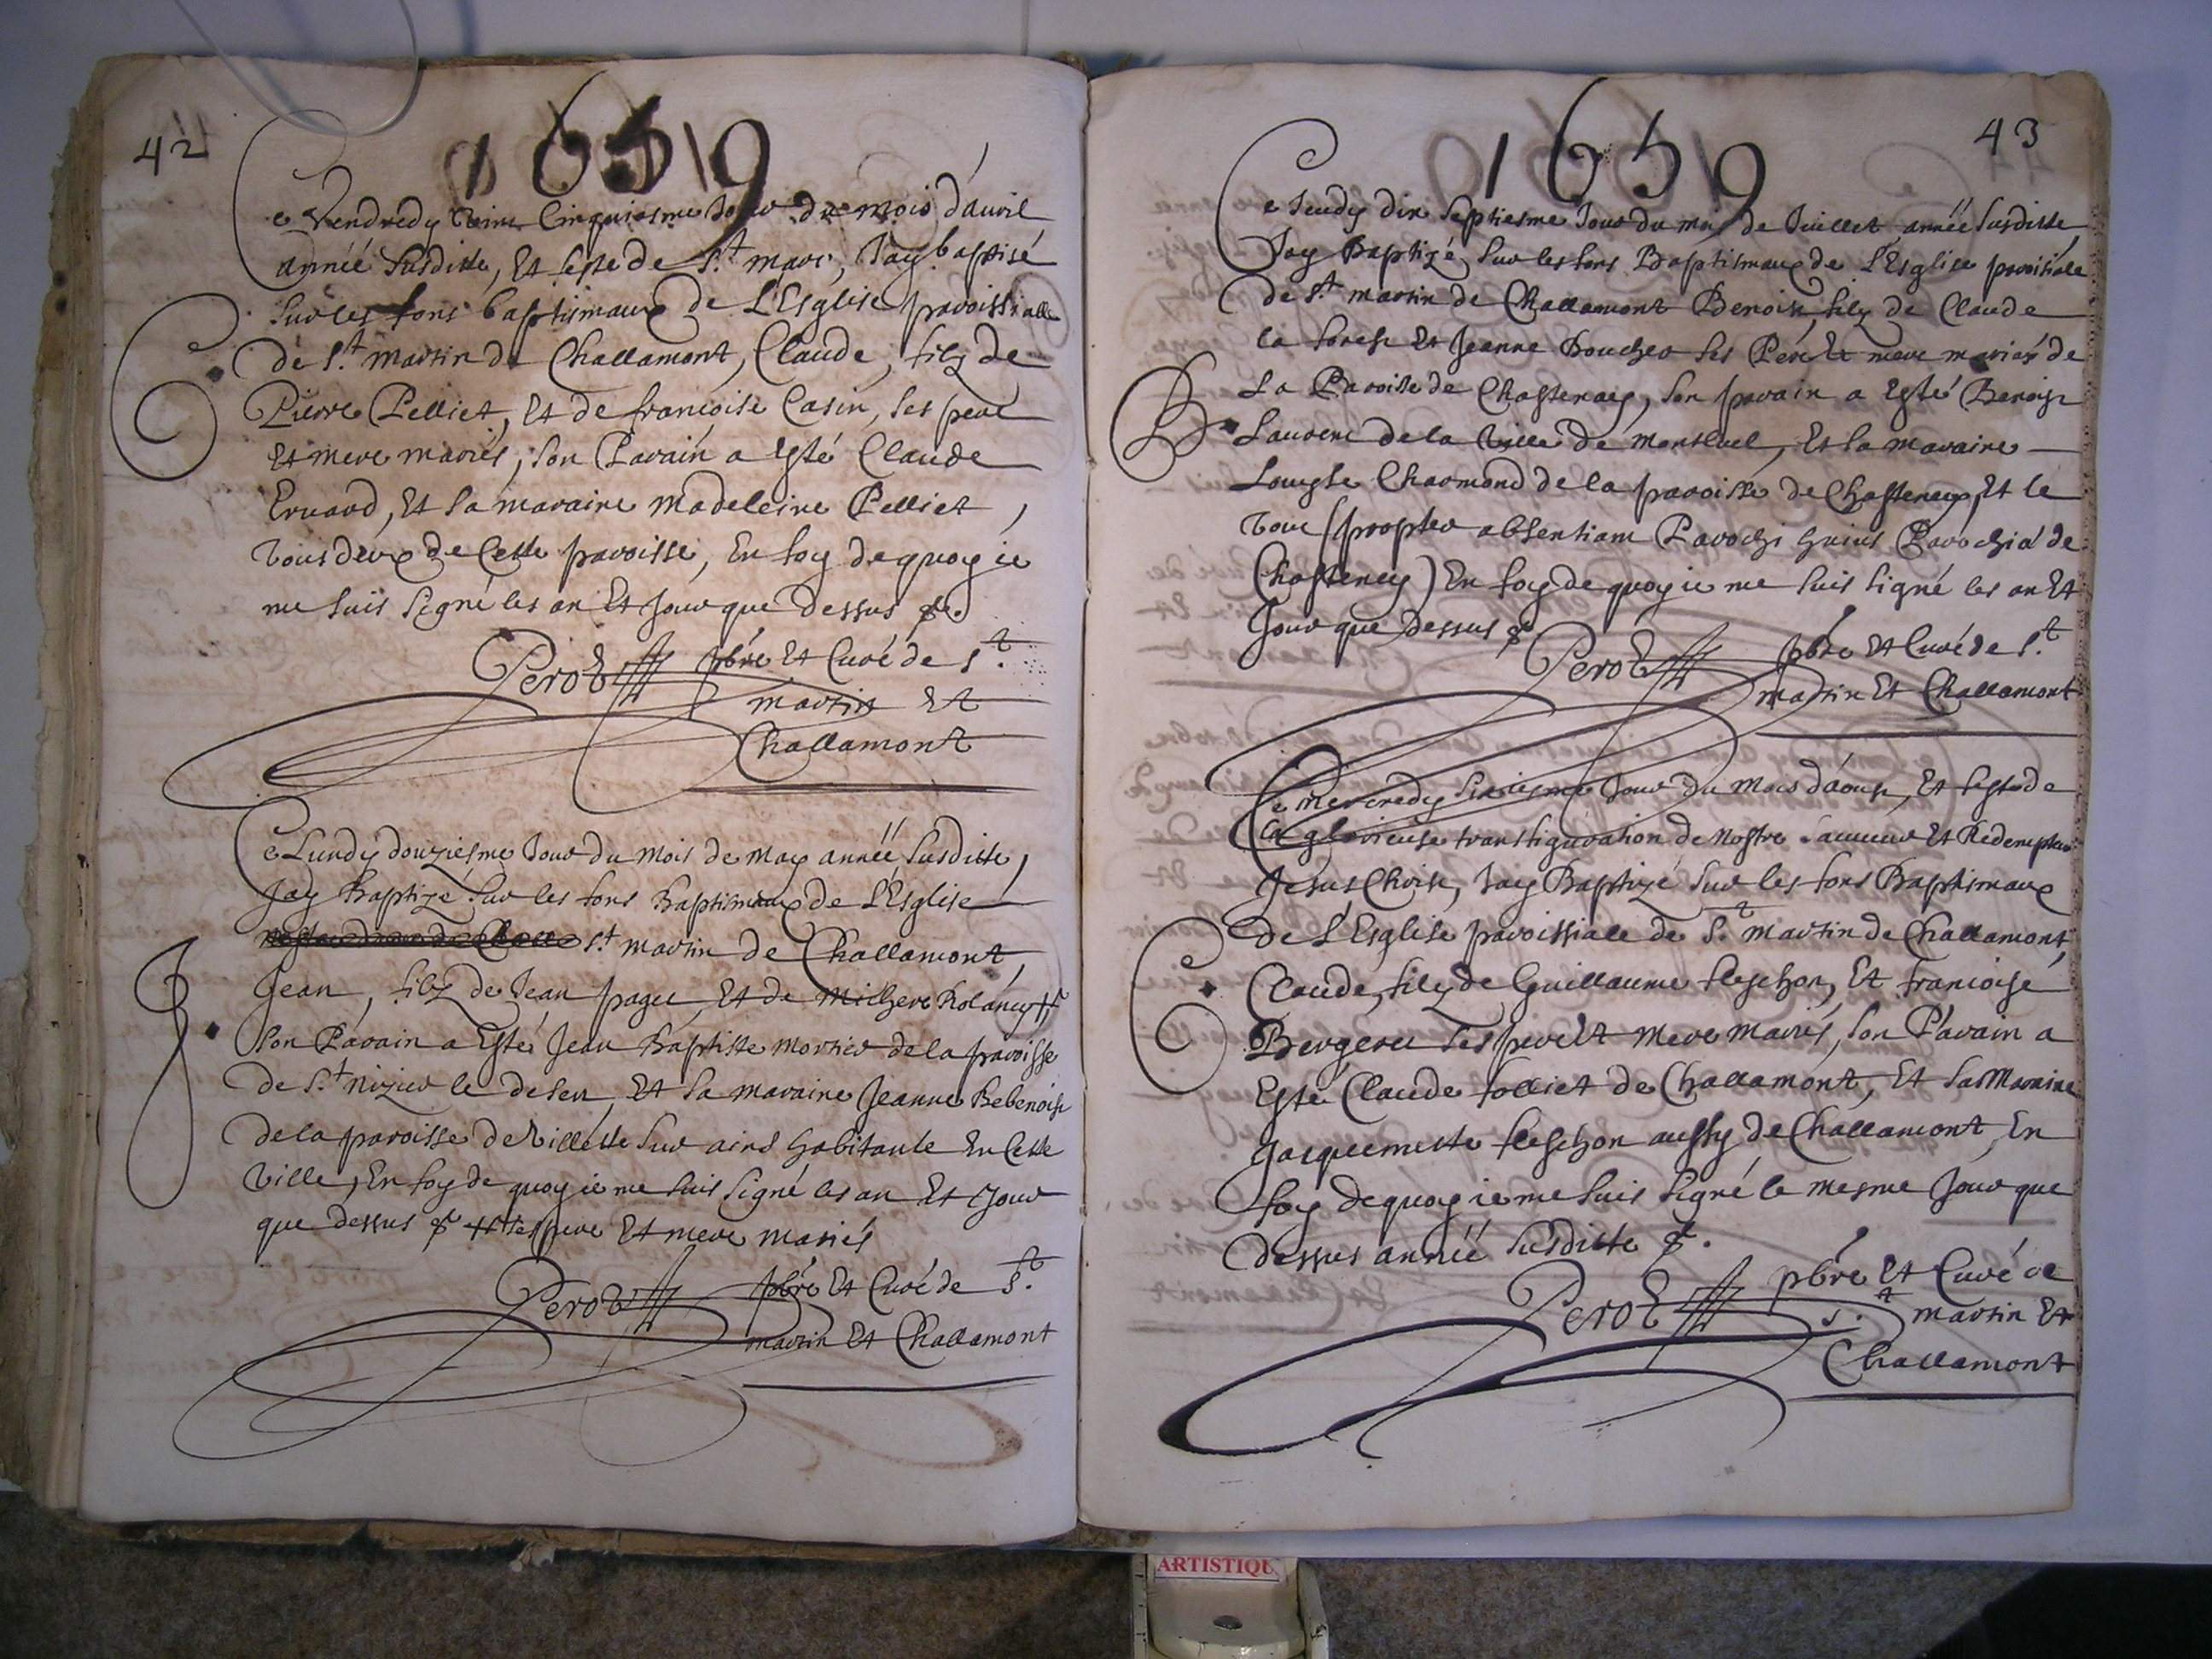 42
1659
Ce Vendredy vint Cinquiesme Jour du mois d'auril
année susditte, Et feste de S.t marc, Jay baptisé
sur les fons baptismaux de L'Esglise paroissialle
de S.t martin de Challamont, Claude, filz de
Pierre Pelliet, Et de françoise Casin, ses pere
Et mere mariés, son Parain a esté Claude
Eruard, Et sa maraine Madeleine Pelliet,
tous deux de Cette paroisse, En foy de quoy ie
me suis signé les an Et Jour que dessus &c.
Perot pbre Et Curé de S.t
martin Et
Challamont
Ce Lundy douziesme Jour du Mois de may année susditte,
Jay Baptizé sur les fons Baptismaux de L'Esglise
S.t martin de Challamont,
Jean, filz de Jean paget, Et de
son Parain a Esté Jean Baptiste mortier de la paroisse
de S.t nizier le desert, Et sa maraine Jeanne
de la paroisse de Villette sur ains habitante En Cette
Ville, En foy de quoy ie me suis signé les an Et Jour
que dessus &c ses pere Et mere mariés
Perot pbre Et Curé de S.t
martin Et Challamont
43
1659
Ce Jeudy dix septiesme Jour du mois de Juillet année susditte,
Jay Baptizé sur les fons Baptismaux de L'Esglise paroissiale
de S.t martin de Challamont Benoist, filz de Claude
la forest Et Jeanne Boucher ses Pere Et mere mariés de
La Paroisse de Chastenay, son parain a Esté Benoist
Laurent de la Ville de montluel, Et sa maraine
Louyse Charmond de la paroisse de Chastenay, Et le
tout (propter absentiam Parochi huius Parochiæ de
Chasteney) En foy de quoy ie me suis signé les an Et
Jour que dessus &c
Perot pbre Et Curé de S.t
martin Et Challamont
Ce mercredy sixiesme Jour du Mois d'aoust, Et feste de
La glorieuse transfiguration de Nostre sauueur Et Redempteur
Jesus Christ, Jay Baptizé sur les fons Baptismaux
de L'Esglise paroissiale de S.t martin de Challamont,
Claude, filz de Guillaume fleschon, Et francoise
Bergeret ses pere Et mere mariés, son Parain a
Esté Claude folliet de Challamont, Et sa Maraine
Jacquemette fleschon aussy de Challamont, En
foy de quoy ie me suis signé le mesme Jour que
dessus année susditte &c.
Perot pbre Et Curé de
S.t martin Et
Challamont
ARTISTIQU